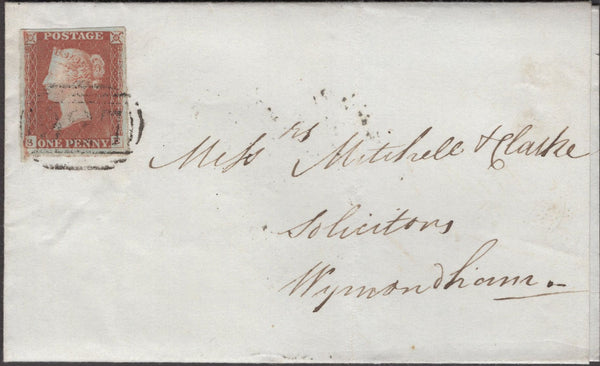 POSTAGE
ONE PENNY
Mess rs Mitchell & Clarke
Solicitors
Wymondham.